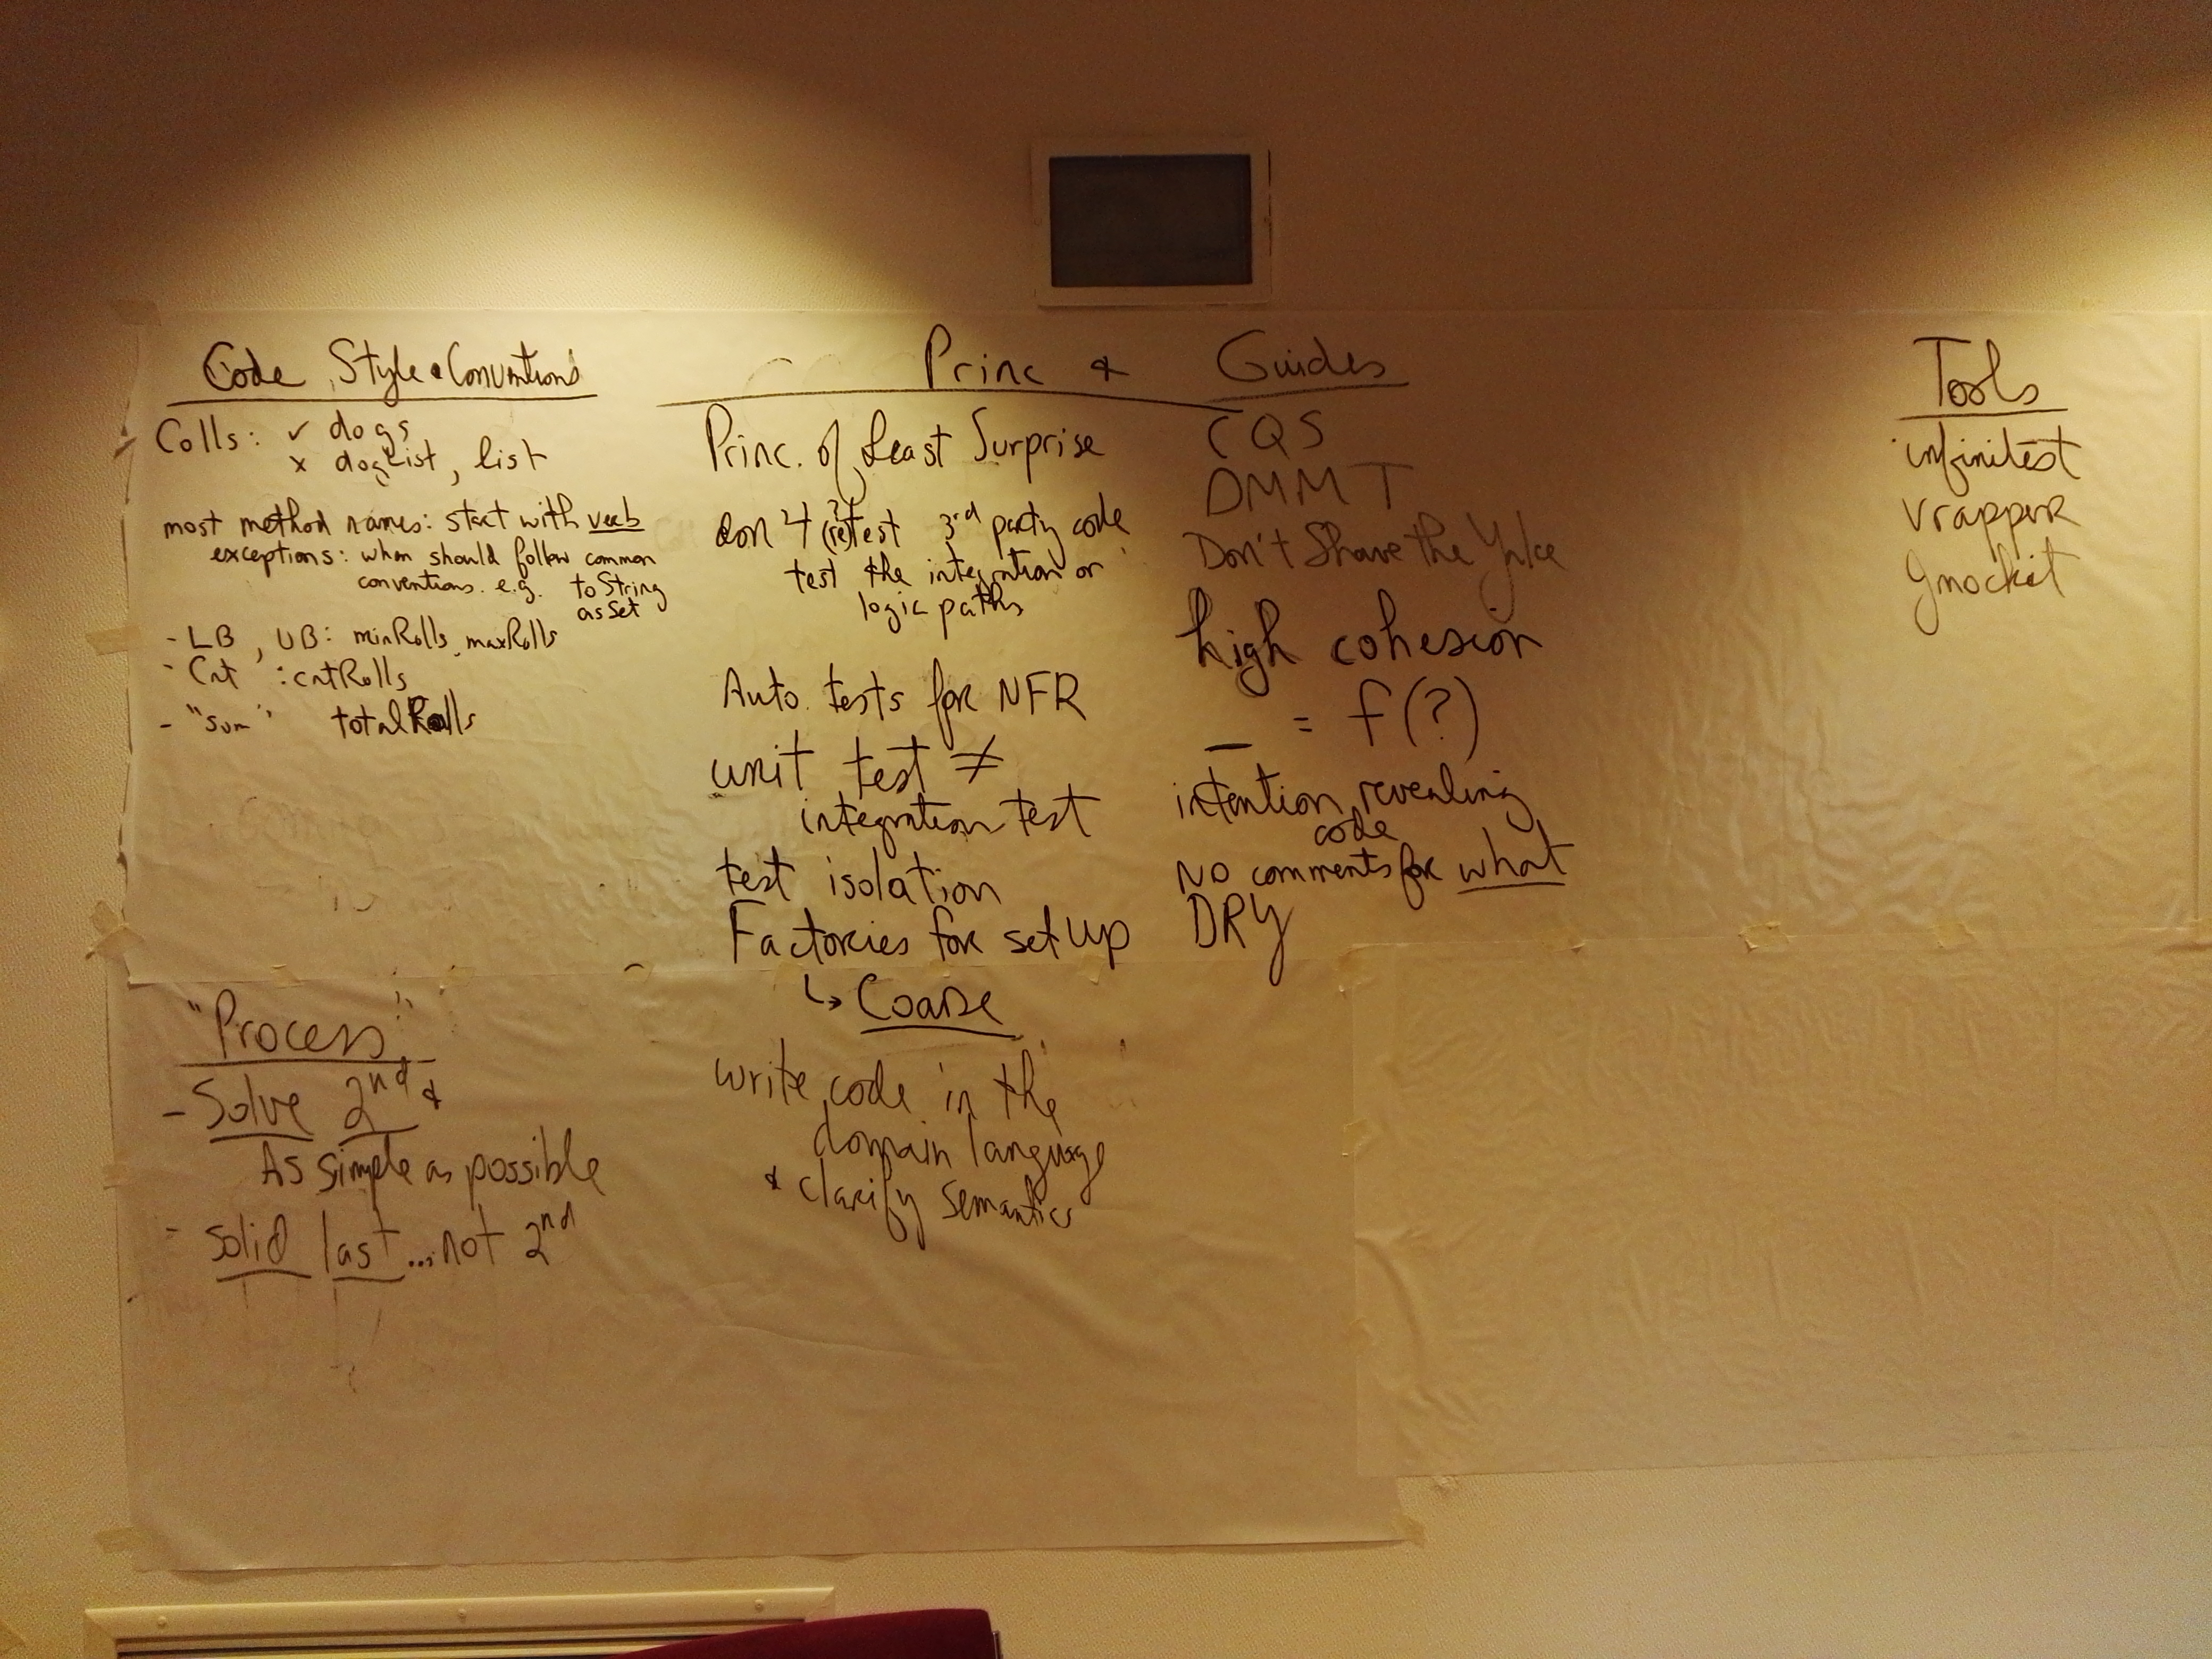 Code Style & Conventions
Colls: ✓ dogs
x dogList, list
most method names: start with verb
exceptions: when should follow common
conventions. e.g. toString
asSet
- LB, UB: minRolls, maxRolls
- Cnt : cntRolls
- "sum" totalRolls
"Process"
- Solve 2nd &
As simple as possible
- solid last...not 2nd
Princ & Guides
Princ. of Least Surprise
don't (re)test 3rd party code
test the integration or
logic paths
Auto. tests for NFR
unit test ≠
integration test
test isolation
Factories for set up
↳ Coarse
write code in the
domain language
& clarify semantics
CQS
DMMT
Don't Shave the Yake
high cohesion
_ = f(?)
intention revealing
code
No comments for what
DRY
Tools
infinitest
vrapper